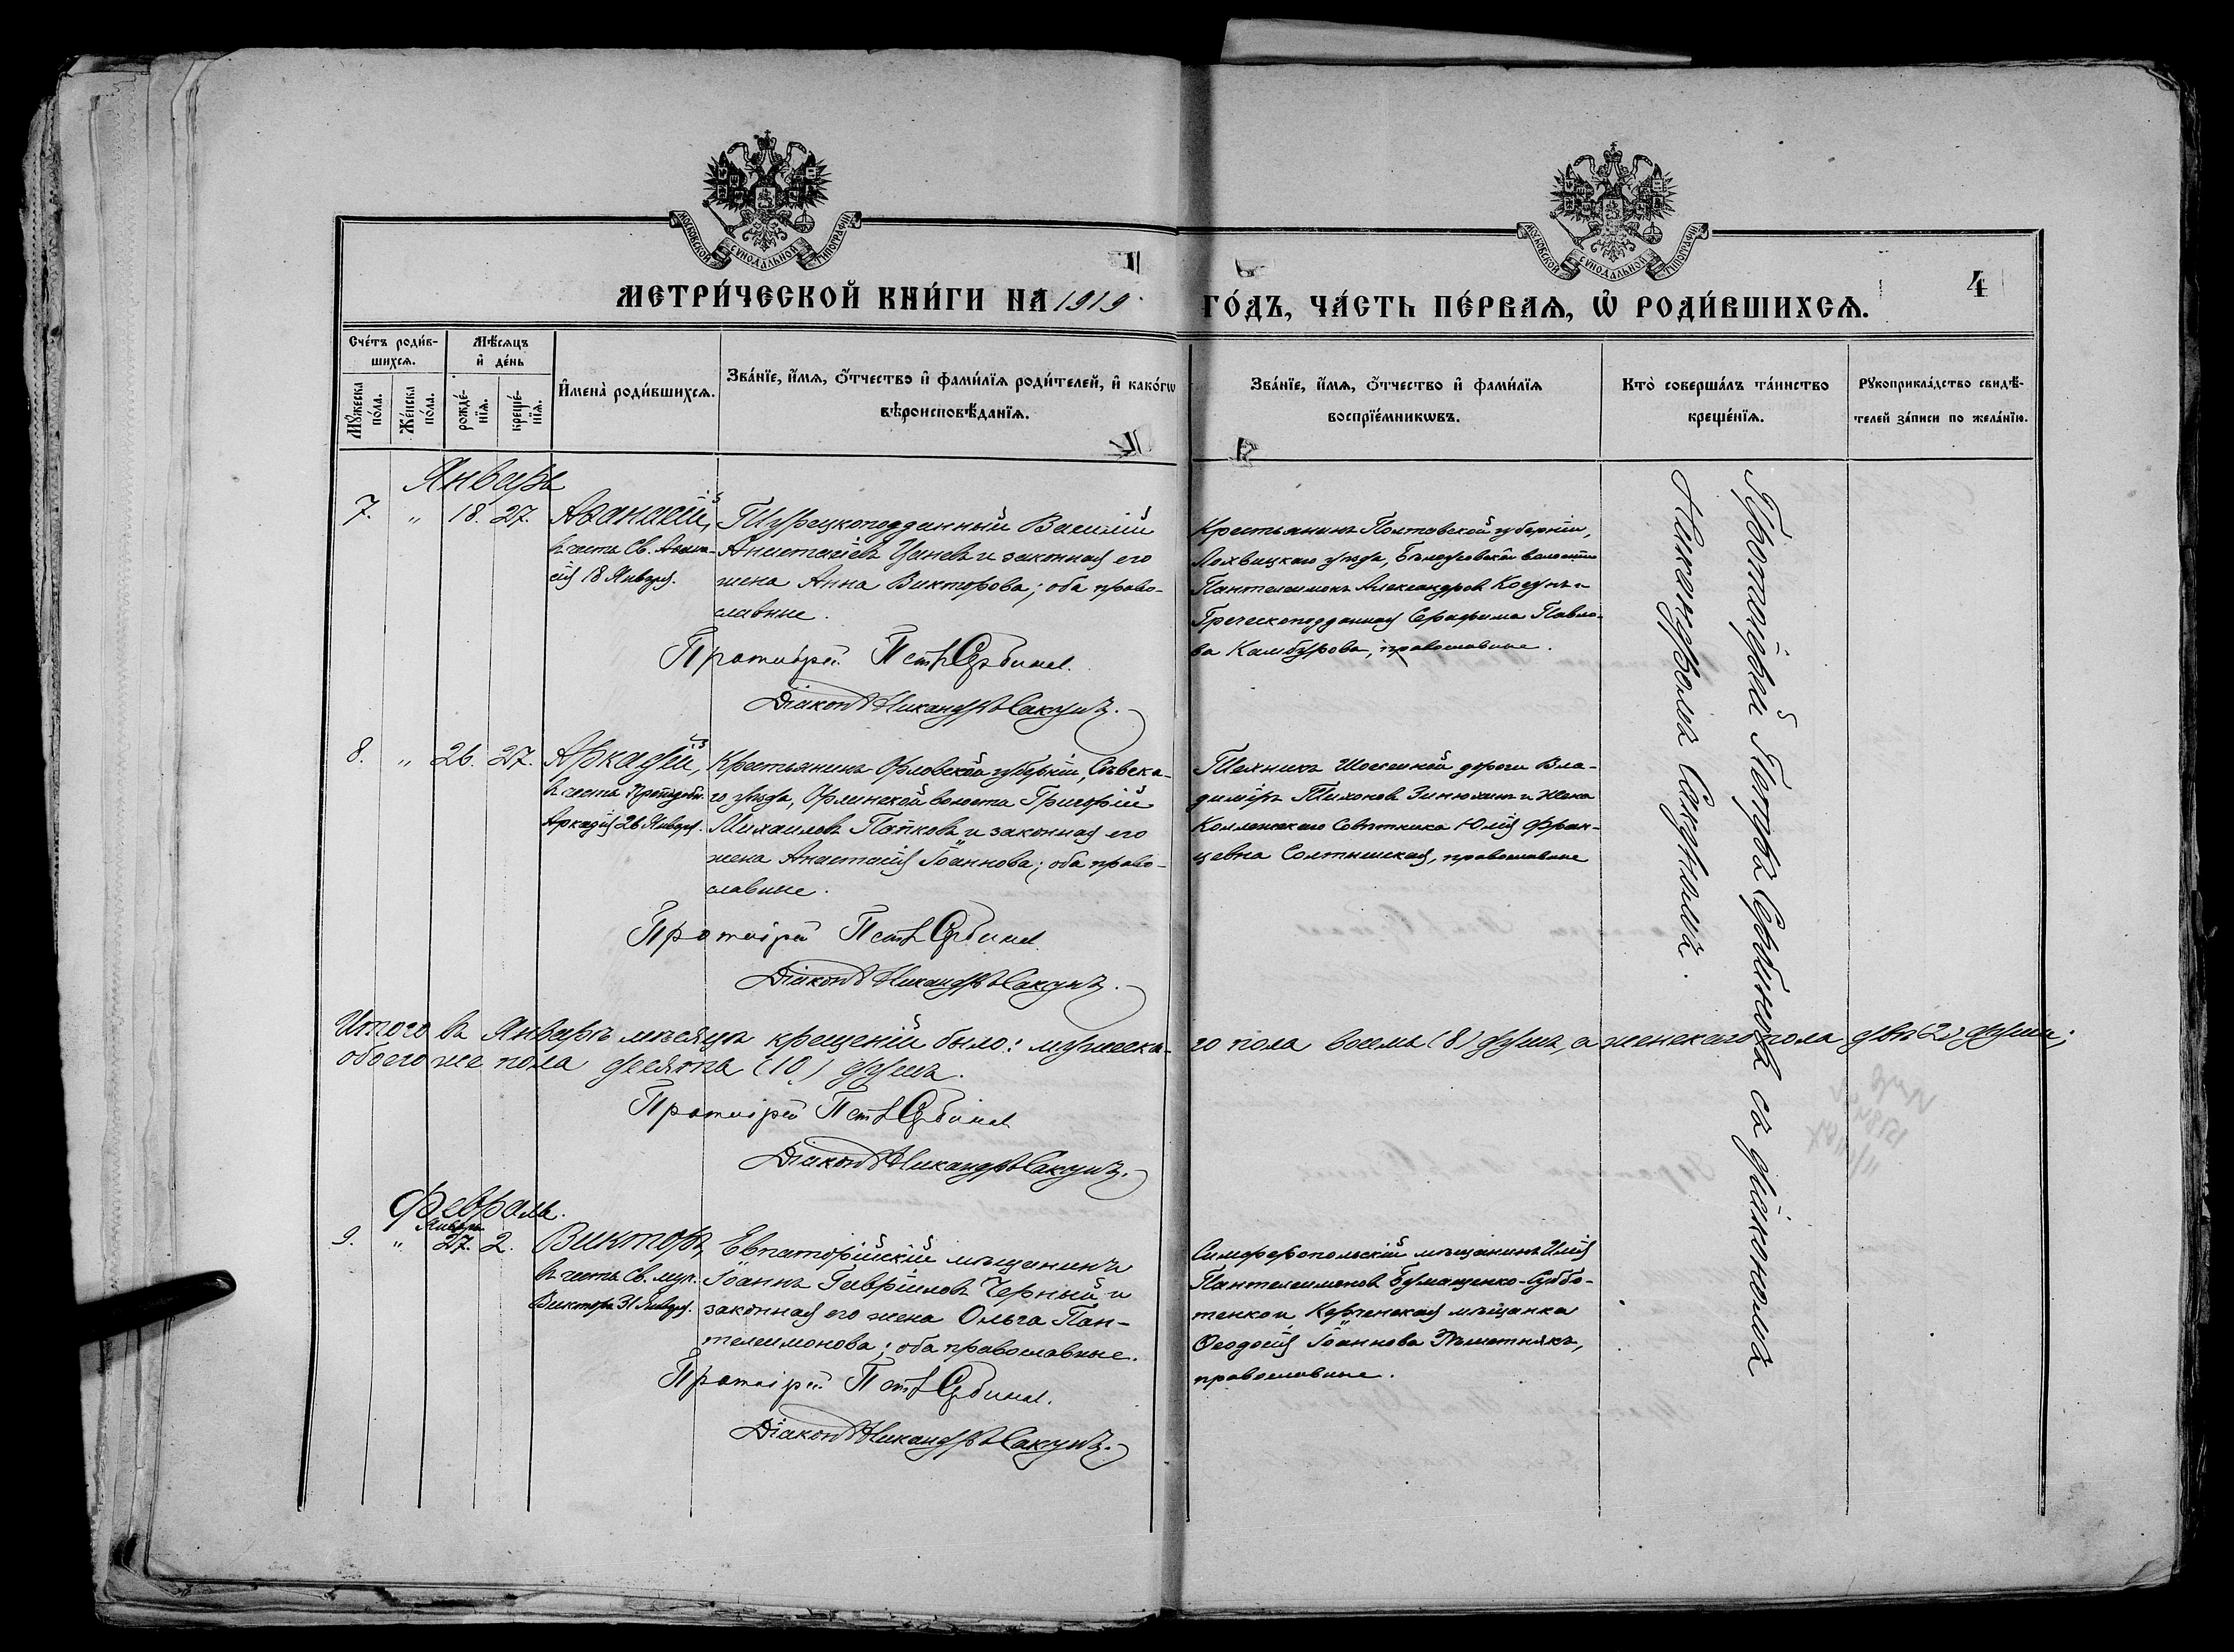 МОСКОВСКОЙ СѴНОДАЛЬНОЙ ТИПОГРАФІИ
МОСКОВСКОЙ СѴНОДАЛЬНОЙ ТИПОГРАФІИ
МЕТРИ́ЧЕСКОЙ КНИ́ГИ НА 1919
ГО́ДЪ, ЧА́СТЬ ПЕ́РВАѦ, Ѡ҆ РОДИ́ВШИХСѦ.
4
Сче́тъ роди́в-
шихсѧ.
Мꙋ́жеска
по́ла.
Же́нска
по́ла.
Мѣ́сѧцъ
и҆ де́нь
рожде́-
нїѧ.
креще́-
нїѧ.
И҆мена̀ роди́вшихсѧ.
Зва́нїе, и҆́мѧ, ѻ҆́тчество и҆ фами́лїѧ роди́телей, и҆ како́гѡ
вѣроисповѣ́данїѧ.
Зва́нїе, и҆́мѧ, ѻ҆́тчество и҆ фами́лїѧ
воспрїе́мникѡвъ.
Кто̀ соверша́лъ та́инство
креще́нїѧ.
Рꙋкоприкла́дство свидѣ́-
телей за́писи по жела́нїю.
Январь
7. " 18. 27. Аѳанасій,
въ честь Св. Аѳана-
сія 18 Января.
Турецкоподданный Василій
Анастасіевъ Цаневъ и законная его
жена Анна Викторова; оба право-
славные.
Протоіерей Петръ Сербиновъ.
Діаконъ Никандръ Саксунъ.
Крестьянинъ Полтавской губерніи,
Лохвицкаго уѣзда, Бѣлоусовской волости
Пантелеимонъ Александровъ Косунъ и
Греческоподданная Серафима Павло-
ва Камбурова, православные.
8. " 26. 27. Аркадій,
въ честь Преподобн.
Аркадія 26 Января.
Крестьянинъ Орловской губерніи, Сѣвска-
го уѣзда, Орлинской волости Григорій
Михаиловъ Папковъ и законная его
жена Анастасія Іоаннова; оба право-
славные.
Протоіерей Петръ Сербиновъ.
Діаконъ Никандръ Саксунъ.
Техникъ Шоссейной дороги Вла-
диміръ Тихоновъ Зинюхинъ и жена
Коллежскаго Совѣтника Юлія Фран-
цевна Солтышская, православные
Протоіерей Петръ Сербиновъ съ діакономъ
Никандромъ Саксунымъ.
Итого въ Январѣ мѣсяцѣ крещеній было: мужеска-го пола восемь (8) душъ, а женскаго пола двѣ (2) души;
обоего же пола десять (10) душъ.
Протоіерей Петръ Сербиновъ
Діаконъ Никандръ Саксунъ.
Февраль.
Января
9. " 27. 2. Викторъ,
въ честь Св. муч.
Виктора 31 Января.
Евпаторійскій мѣщанинъ
Іоаннъ Гавріиловъ Черный и
законная его жена Ольга Пан-
телеимонова; оба православные.
Протоіерей Петръ Сербиновъ.
Діаконъ Никандръ Саксунъ.
Симферопольскій мѣщанинъ Илія
Пантелеимоновъ Бумащенко-Суббо-
тенко и Керченская мѣщанка
Ѳеодосія Іоаннова Рѣшетнякъ,
православные.